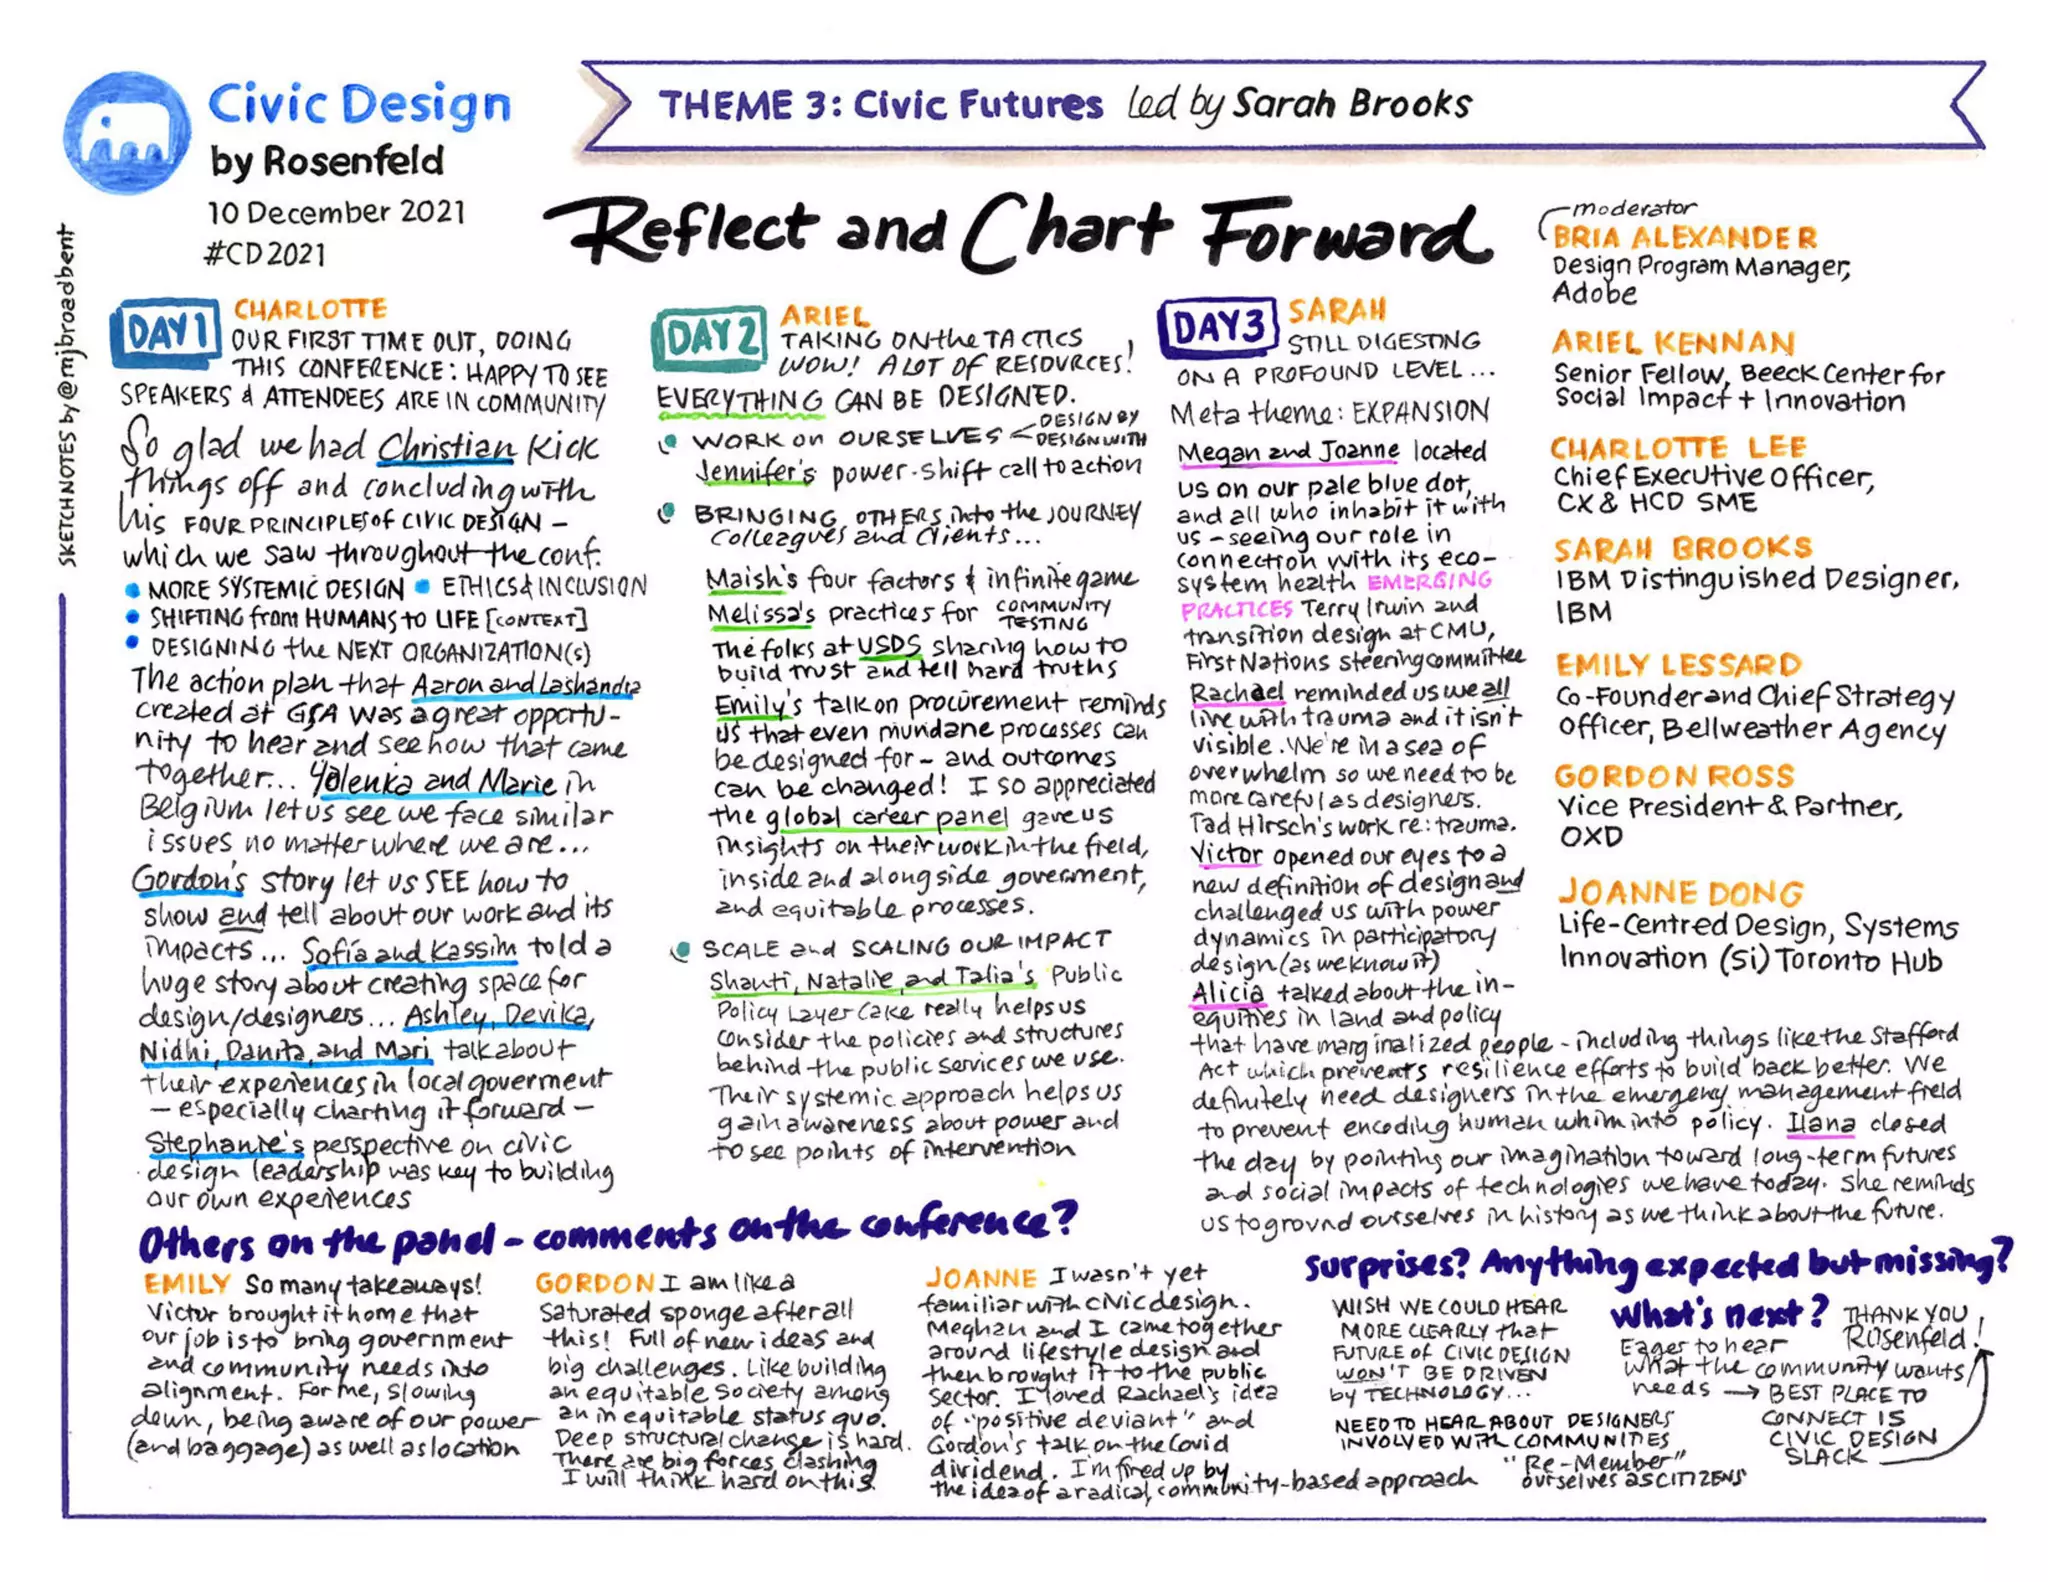 Civic Design
by Rosenfeld
10 December 2021
#CD2021
THEME 3: Civic Futures Led by Sarah Brooks
Reflect and Chart Forward
SKETCHNOTES by @mjbroadbent
moderator
BRIA ALEXANDER
Design Program Manager,
Adobe
ARIEL KENNAN
Senior Fellow, Beeck Center for
Social Impact + Innovation
CHARLOTTE LEE
Chief Executive Officer,
CX & HCD SME
SARAH BROOKS
IBM Distinguished Designer,
IBM
EMILY LESSARD
Co-Founder and Chief Strategy
Officer, Bellweather Agency
GORDON ROSS
Vice President & Partner,
OXD
JOANNE DONG
Life-Centred Design, Systems
Innovation (Si) Toronto Hub
DAY 1
CHARLOTTE
OUR FIRST TIME OUT, DOING
THIS CONFERENCE: HAPPY TO SEE
SPEAKERS & ATTENDEES ARE IN COMMUNITY
So glad we had Christian kick
things off and concluding with
his FOUR PRINCIPLES of CIVIC DESIGN –
which we saw throughout the conf.
• MORE SYSTEMIC DESIGN • ETHICS & INCLUSION
• SHIFTING from HUMANS to LIFE [CONTEXT]
• DESIGNING the NEXT ORGANIZATION(s)
The action plan that Aaron and Lashandra
created at GSA was a great opportu-
nity to hear and see how that came
together... Yolenka and Marie in
Belgium let us see we face similar
issues no matter where we are...
Gordon's story let us SEE how to
show and tell about our work and its
impacts... Sofía and Kassim told a
huge story about creating space for
design/designers... Ashley, Devika,
Nidhi, Danita, and Mari talk about
their experiences in local goverment
– especially charting it forward –
Stephanie's perspective on civic
design leadership was key to building
our own experiences
DAY 2
ARIEL
TAKING ON the TACTICS
WOW! A LOT OF RESOURCES!
EVERYTHING CAN BE DESIGNED.
WORK on OURSELVES < DESIGN BY
DESIGN WITH
Jennifer's power-shift call to action
BRINGING OTHERS into the JOURNEY
Colleagues and Clients...
Maish's four factors & infinite game
Melissa's practices for COMMUNITY
TESTING
The folks at USDS sharing how to
build trust and tell hard truths
Emily's talk on procurement reminds
us that even mundane processes can
be designed for – and outcomes
can be changed! I so appreciated
the global career panel gave us
insights on their work in the field,
inside and alongside goverment,
and equitable processes.
SCALE and SCALING OUR IMPACT
Shanti, Natalie, and Talia's Public
Policy Layer Cake really helps us
consider the policies and structures
behind the public services we use.
Their systemic approach helps us
gain awareness about power and
to see points of intervention
DAY 3
SARAH
STILL DIGESTING
ON A PROFOUND LEVEL...
Meta theme: EXPANSION
Megan and Joanne located
us on our pale blue dot,
and all who inhabit it with
us – seeing our role in
connection with its eco-
system health EMERGING
PRACTICES Terry Irwin and
transition design at CMU,
First Nations steering committee
Rachael reminded us we all
live with trauma and it isn't
visible. We're in a sea of
overwhelm so we need to be
more careful as designers.
Tad Hirsch's work re: trauma.
Victor opened our eyes to a
new definition of design and
challenged us with power
dynamics in participatory
design (as we know it)
Alicia talked about the in-
equities in land and policy
that have marginalized people – including things like the Stafford
Act which prevents resilience efforts to build back better. We
definitely need designers in the emergeny management field
to prevent encoding human whim into policy. Ilana closed
the day by pointing our imagination toward long-term futures
and social impacts of technologies we have today. She reminds
us to ground ourselves in history as we think about the future.
Others on the panel – comments on the conference?
EMILY So many takeaways!
Victor brought it home that
our job is to bring government
and community needs into
alignment. For me, slowing
down, being aware of our power
(and baggage) as well as location
GORDON I am like a
saturated sponge after all
this! Full of new ideas and
big challenges. Like building
an equitable society among
an inequitable status quo.
Deep structural change is hard.
There are big forces clashing
I will think hard on this.
JOANNE I wasn't yet
familiar with civic design.
Meghan and I came together
around lifestyle design and
then brought it to the public
sector. I loved Rachael's idea
of "positive deviant" and
Gordon's talk on the Covid
dividend. I'm fired up by
the idea of a radical, community-based approach
Surprises? Anything expected but missing?
WISH WE COULD HEAR
MORE CLEARLY that
FUTURE of CIVIC DESIGN
WON'T BE DRIVEN
by TECHNOLOGY...
NEED TO HEAR ABOUT DESIGNERS
INVOLVED WITH COMMUNITIES
"Re-Member"
ourselves as CITIZENS
What's next?
Eager to hear
what the community wants/
needs → BEST PLACE TO
CONNECT IS
CIVIC DESIGN
SLACK
THANK YOU,
Rosenfeld!